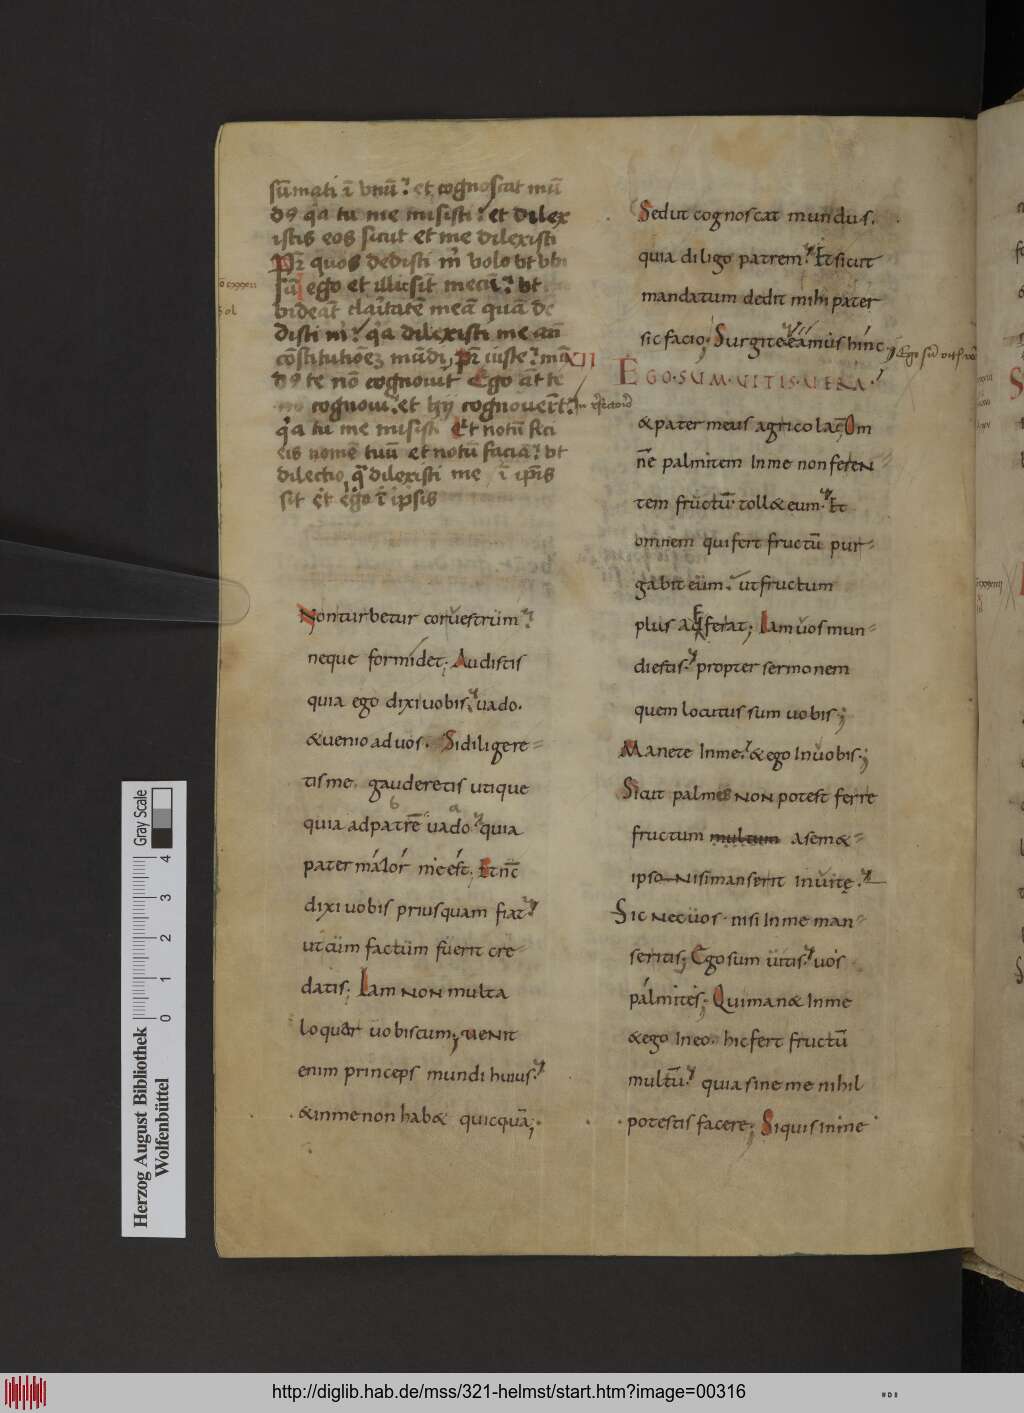 sūmati ī vnū? et cognoscat mū
dꝰ qa tu me misisti? et dilex
istis eos sicut et me dilexisti
Pr̄ quos dedisti m̄ volo vt vbi
sū ego et illi sīt mecū? vt
videāt claritatē meā quā de
disti m̄? qa dilexisti me an̄
cōstitutionez mūdi, pr̄ iuste? mū XII
dꝰ te nō cognouit Ego āt te
cognoui? et hÿ cognouer̄t?
qa tu me misisti Et notū feci
eis nomē tuū et notū faciā? vt
dilectio, q̄ dilexisti me ī ip̄is
sit et ego ī ipsis
Non turbetur cor uestrum
neque formidet; Audistis
quia ego dixi uobis. uado.
& uenio ad uos. Si diligere-
tis me. gauderetis utique
quia ad patrē uado. quia
pater maior me est; Et nc̄
dixi uobis priusquam fiat.
ut cum factum fuerit cre-
datis; Iam non multa
loquar uobiscum; uenit
enim princeps mundi huius.
& in me non hab& quicquā;
Sed ut cognoscat mundus.
quia diligo patrem. Et sicut
mandatum dedit mihi pater
sic facio; Surgite eamus hinc;
EGO·SUM·UITIS·UERA·
& pater meus agricola ē; Om
nē palmitem In me non feren-
tem fructū. toll& eum. Et
omnem qui fert fructū pur-
gabit eum. ut fructum
plus adferat; Iam uos mun-
di estis. propter sermonem
quem locutus sum uobis;
Manete In me. & ego In uobis;
Sicut palmes non potest ferre
fructum multum a sem&-
ipso Nisi manserit in uite.
Sic nec uos. nisi In me man-
seritis; Ego sum uitis. uos
palmites; Qui man& In me
& ego In eo. hic fert fructū
multū. quia sine me nihil
potestis facere; Si quis in me
Herzog August Bibliothek
Wolfenbüttel
0 1 2 3 4
Gray Scale
http://diglib.hab.de/mss/321-helmst/start.htm?image=00316